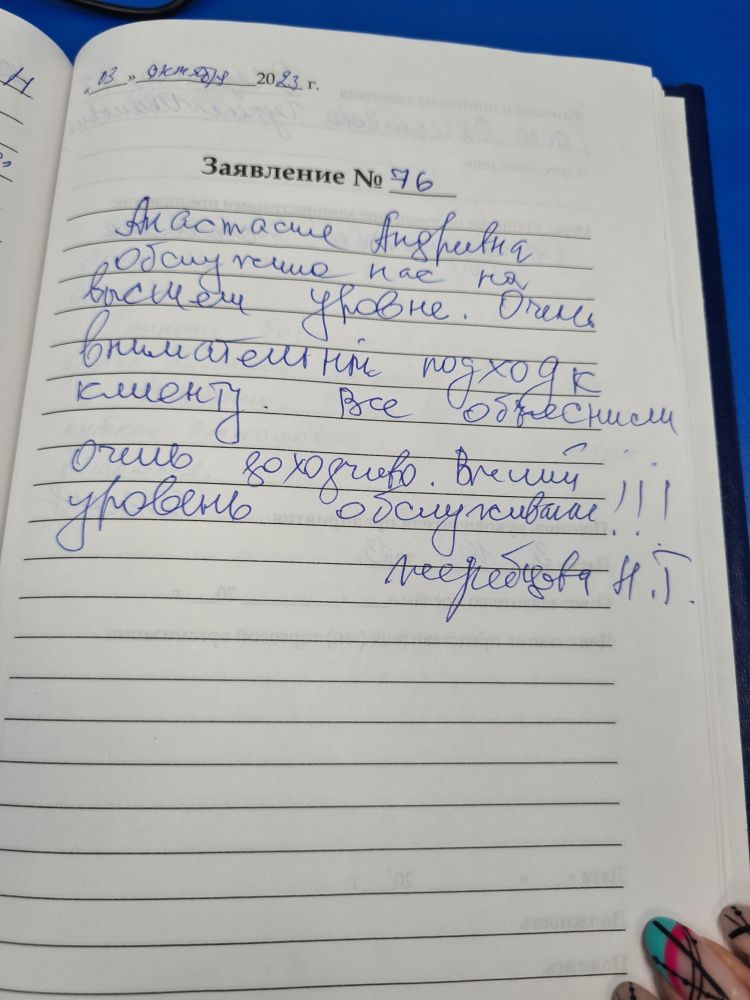 « 03 » октября 2023 г.
Заявление № 76
Анастасия Андривна
обслужила нас на
высшем уровне. Очень
внимательный подход к
клиенту. Все объяснили
очень доходчиво. Высший
уровень обслуживания!!!
Жеребцова Н.Г.